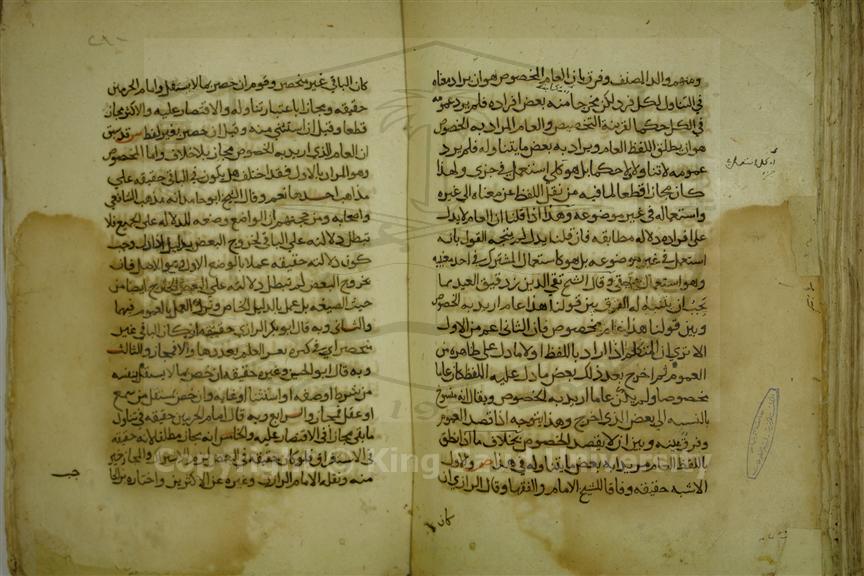 ومنهم والد المصنف وفرق بان العام المخصوص هو ان يراد معناه
في التناول لكل فرد لكن مخرجا منه بعض افراده فلم يرد عمومه
في الكل حكما لقرينة التخصيص والعام المراد به الخصوص
هو ان يطلق اللفظ العام ويراد به بعض ما يتناوله فلم يرد
عمومه لا تناولا ولا حكما بل هو كلي استعمل في جزى ولهذا
كان مجازا قطعا لما فيه من نقل اللفظ عن معناه الى غيره
واستعماله في غير موضوعه وهذا اذا قلنا ان العام لا يدل
على افراده دلالة مطابقة فان قلنا يدل لم يتجه القول بانه
استعمل في غير موضوعه بل هو كاستعمال المشترك في احد معنييه
وهو استعمال حقيقي وقال الشيخ تقي الدين بن دقيق العيد مما
يجب ان يتنبه له الفرق بين قولنا هذا عام اريد به الخصوص
وبين قولنا هذا عام مخصوص فان الثاني اعم من الاول
الا ترى ان المتكلم اذا اراد باللفظ اولا ما دل على ظاهره من
العموم ثم اخرج بعد ذلك بعض ما دل عليه اللفظ كان عاما
مخصوصا ولم يكن عاما اريد به الخصوص ويقال انه منسوخ
بالنسبة الى البعض الذي اخرج وهذا يتوجه اذا قصد العموم
وفرق بينه وبين ان لا يقصد الخصوص بخلاف ما اذا نطق
باللفظ العام مريدا به بعض ما يتناوله في هذا ص والاول
الاشبه حقيقة وفاقا للشيخ الامام والفقها وقال الرازي ان
كان
كان الباقي غير منحصر وقوم ان خص بما لا يستقل وامام الحرمين
حقيقة ومجازا باعتبار تناوله والاقتصار عليه والاكثر مجاز
قطعا وقيل ان استثنى منه وقيل ان خص بغير لفظ ش قد سبق
ان العام الذي اريد به الخصوص مجاز بلا خلاف واما المخصوص
وهو المراد بالاول فقد اختلف هل يكون في الباقي حقيقة على
مذاهب احدها نعم وقال الشيخ ابو حامد انه مذهب الشافعي
واصحابه ومن حجتهم ان الواضع وضعه للدلالة على الجميع فلا
تبطل دلالته على الباقي لخروج البعض بدليل
كون دلالته حقيقة عملا بالوضع الاول
بخروج البعض لم تبطل دلالته على البعض الخارج ايضا من
حيث الصيغة بل عمل بالدليل الخاص وترك العمل بالعموم فيها
والثاني وبه قال ابو بكر الرازي حقيقة ان كان الباقي غير
منحصر اي في كثرة يعسر العلم بعددها والا فمجاز والثالث
وبه قال ابو الحسين وغيره حقيقة ان خص بما لا يستقل بنفسه
من شرط او صفة او استثنا او غاية وان خص بمستقل من سمع
او عقل فمجاز والرابع وبه قال امام الحرمين حقيقة في تناول
ما بقي مجاز في الاقتصار عليه والخامس انه مجاز مطلقا لانه حقيقة
في الاستغراق فلو كان حقيقة في البعض لزم الاشتراك والمجاز خير
منه ونقله الامام الرازي وغيره عن الاكثرين واختاره
Copyright © King Saud University